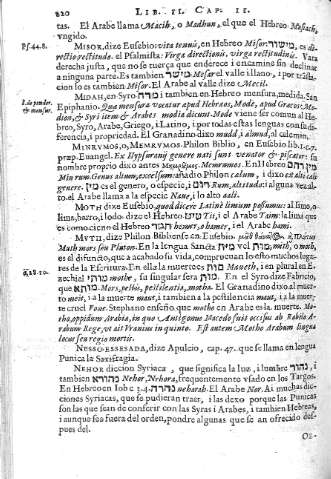 220 LIB. II. CAP. II.
cas. El Arabe llama Macih, o Madhun, el que el Hebreo Mesiach,
vngido.
Ps. 44.8. MISOR, dize Eusebio vita tenuâ, en Hebreo Misor. מישור, es di-
rectio rectitudo. el Psalmista: Virga directionis, virga rectitudinis. Vara
derecha justa, que no se tuerça que enderece i encamine sin declinar
a ninguna parte. Es tambien מישר Mesar el valle illano, i por trasla-
cion so es tambien Misor. El Arabe al valle dize Mecil.
MIDAH, en Syro מדה i tambien en Hebreo mensura, medida. San
Epiphanio. Qua mensura vocatur apud Hebraeos, Mode, apud Graecos Mo-
dion, & Syri item & Arabes modia dicunt. Mode viene ser comun al He-
breo, Syro, Arabe, Griego, i Latino, i por todas estas lenguas con su di-
ferencia, i propriedad. El Granadino dixo mudd, i almud, al celemin.
MINRVMOS, o, MEMRVMOS. Philon Biblio, en Eusebio lib. 1. c.7.
præp. Euangel. Ex Hypsuranij genere nati sunt venator & piscator: su
nombre proprio dixo antes Memrumos. En Hebreo מין רום
Min rum. Genus altum, excelsum: añadio Philon calum, i dixo ex alto cæli
genere. es מין es genero, o especie, i רום Rum, altitudo: i alguna vez al-
to. el Arabe llama a la especie Naue, i lo alto aali.
MOTH dize Eusebio quod dicere Latinè limum possumus: al limo, o
lima, barro, i lodo: dize el Hebreo טיט Tit, i el Arabe Taim: la lima que
es como cieno el Hebreo חמר homer, o hamer, i el Arabe hami.
MVTH, dize Philon Bibliense en Eusebio:
Muth mors seu Pluton. En la lengua Sancta מות vel מת, mith, o moth,
es el difuncto, que a acabado su vida, compruecuan lo esto muchos luga-
res de la Escritura. En ella la muerte es מות Maueth, i en plural en E-
zechiel ממותי mothe, su singular sera מות. En el Syro dize Fabricio,
que מותא Mors, pestis, pestilentia, motha. El Granadino dixo al muer-
to meit, i à la muerte maut, i tambien a la pestilencia maut, i a la muer-
te cruel Faur. Stephano enseño que motho en Arabe es la muerte. Mo-
tho, appidum Arabiæ, in quo Antigonus Macedo fuit occisus ab Rabilo A-
rabum Rege, vt ait Vranius in quinto. Est autem Motho Arabum lingua
locus seu regio mortis.
NESSO-ESSEADA, dize Apulcio, cap. 47. que se llama en lengua
Punica la Satifragia.
NEHOR diccion Syriaca, que significa la luz, i lumbre, נהור, i
tambien נהורא Nehor, Nehora, frequentemente vsado en los Targos.
En Hebreo en Iob c. 3.4. נהרה neharah. El Arabe Nor. Ai muchas dic-
ciones Syriacas, que se pudieran traer, i las dexo porque las Punicas
son las que san de conferir con las Syras i Arabes, i tambien Hebreas,
i aunque sea fuera del orden, pondre algunas que se an ofrecido des-
pues del.
OZ-